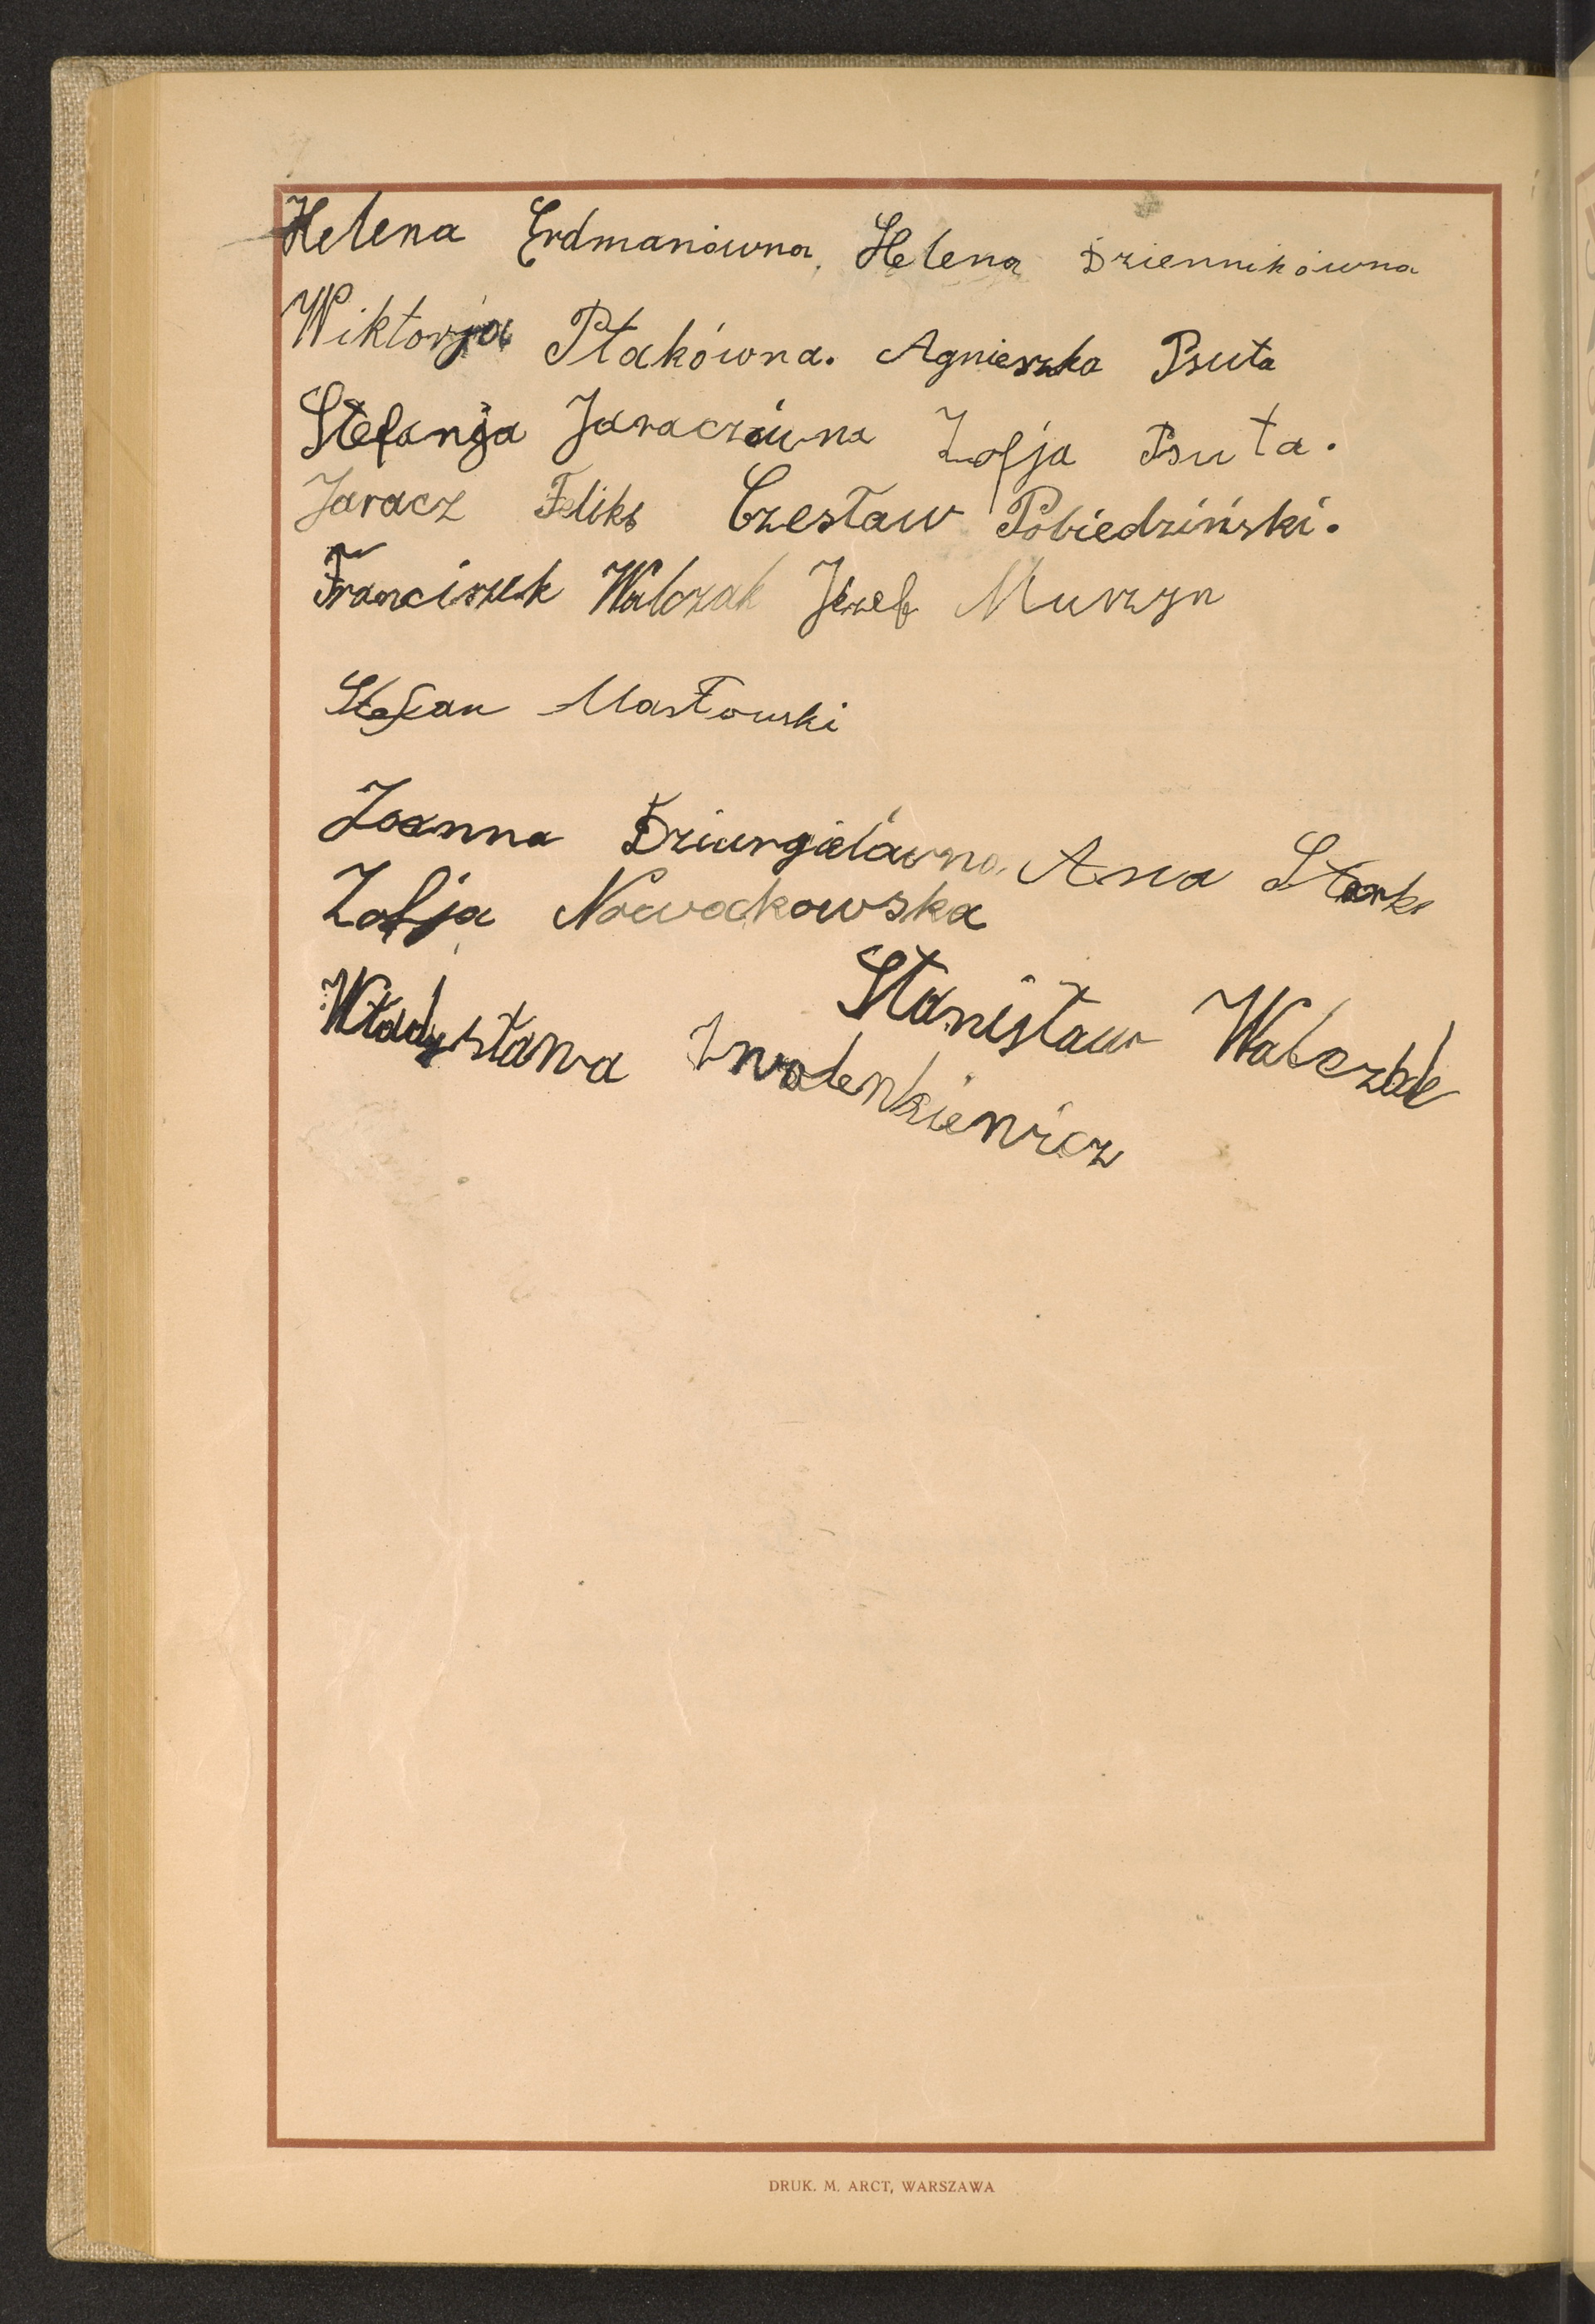 Helena Erdmanówna, Helena Dziennikówna
Wiktorja Ptakówna. Agnieszka Psuta
Stefanja Jaraczówna Zofja Psuta.
Jaracz Feliks Czesław Pobiedziński.
Franciszek Walczak Józef Murzyn
Stefan Masłowski
Joanna Dziurgielówna, Anna Stark
Zofja Nowackowska
Stanisław Walczak
Władysława Zwolenkiewicz
DRUK. M. ARCT, WARSZAWA